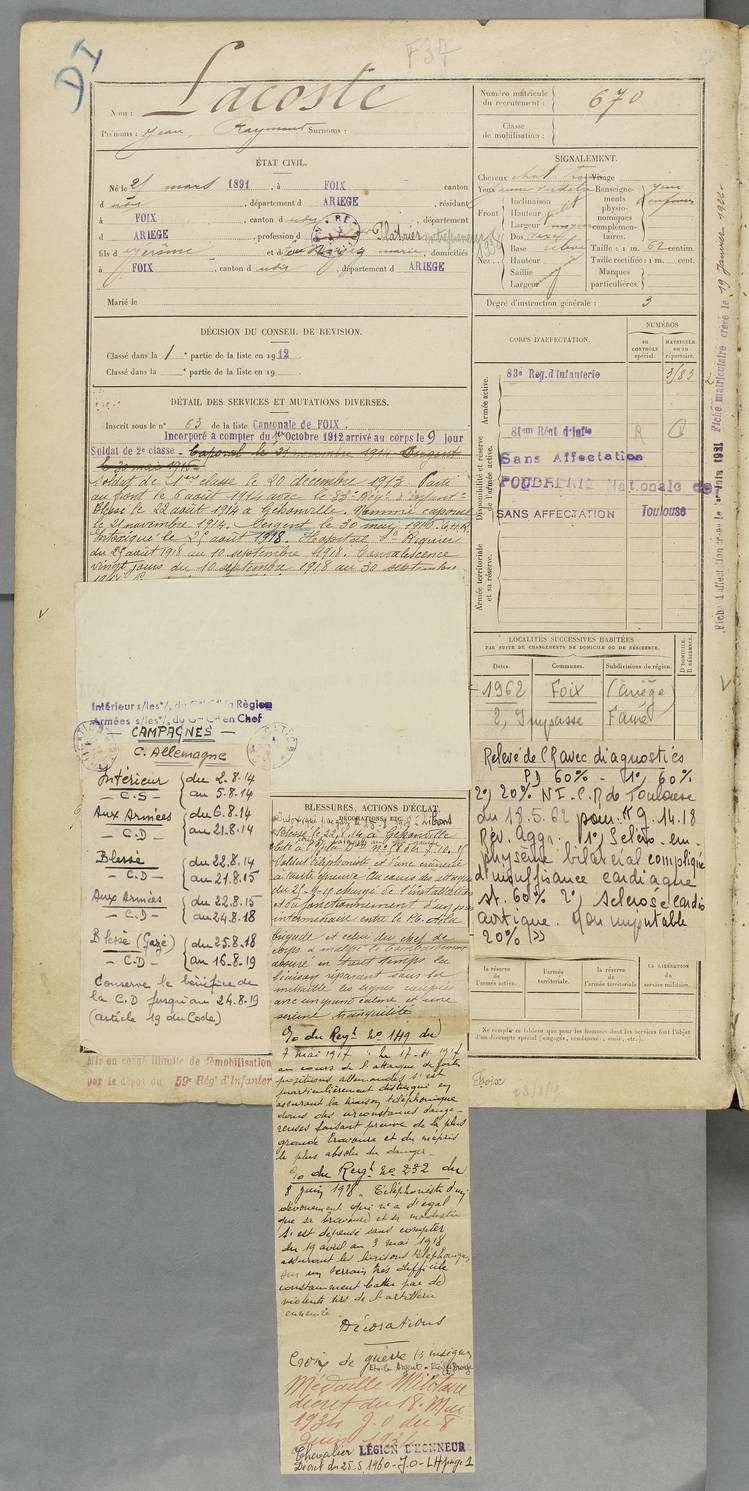 DI
F37
Nom : Lacoste
Prénoms : Jean, Raymond Surnoms :
ÉTAT CIVIL.
Né le 21 mars 1891, à FOIX canton
d udis, département d ARIEGE, résidant
à FOIX, canton d udis, département
d ARIEGE, profession d Plâtrier entrepreneur
fils d Jérôme et d marie, domiciliés
à FOIX, canton d udis, département d ARIEGE
Marié le
DÉCISION DU CONSEIL DE REVISION.
Classé dans la 1e partie de la liste en 1912
Classé dans la e partie de la liste en 19
DÉTAIL DES SERVICES ET MUTATIONS DIVERSES.
Inscrit sous le n° 63 de la liste Cantonale de FOIX.
Incorporé à compter du 1er Octobre 1912 arrivé au corps le 9 jour
Soldat de 2e classe - Caporal le 21 novembre 1914 Sergent
le 30 mai 1916
Soldat de 1ère classe le 20 décembre 1913. Parti
au front le 6 août 1914 avec le 83e Régt d'Infantie
Blessé le 22 août 1914 à Gehonville. Nommé caporal
le 21 novembre 1914. Sergent le 30 mai 1916.
Intoxiqué le 25 août 1918. Hopital St Riquier
du 25 août 1918 au 10 septembre 1918. Convalescence
vingt jours du 10 septembre 1918 au 30 septembre
Intérieur s/les °/. du Gal Ct la Région
Armées s/les °/. du Gal Ct en Chef
CAMPAGNES
C. Allemagne
Intérieur du 2.8.14
- C.S - au 5.8.14
Aux Armées du 6.8.14
- C.D - au 21.8.14
Blessé du 22.8.14
- C.D - au 21.8.15
Aux Armées du 22.8.15
- C.D - au 24.8.18
Blessé (Gazé) du 25.8.18
- C.D - au 16.8.19
Conserve le bénéfice de
la C.D jusqu'au 24.8.19
(article 19 du Code)
Mis en congé illimité de démobilisation
par le dépôt du 59e Régt d'Infanterie
BLESSURES, ACTIONS D'ÉCLAT,
DÉCORATIONS, ETC.
Blessé le 22.8.14 à Gehonville
Soldat téléphoniste d'une crânerie
à toute épreuve. Au cours des attaques
du 25-9-15 chargé de l'installation
et du fonctionnement d'un poste
intermédiaire entre le P.C. de la
brigade et celui du chef de
corps a malgré le bombardement
assuré en tout temps la
liaison réparant sous la
mitraille les lignes coupées
avec un grand calme et une
sereine tranquilité
O/ du Régt n° 149 du
7 mai 1917 : Le 17-4-1917
au cours de l'attaque de fortes
positions allemandes s'est
particulièrement distingué en
assurant la liaison téléphonique
dans des circonstances dange-
reuses faisant preuve de la plus
grande bravoure et du mépris
le plus absolu du danger.
O/ du Régt n° 232 du
8 juin 1918. Téléphoniste d'un
dévouement qui n'a d'égal
que sa bravoure et sa modestie
s'est dépensé sans compter
du 19 avril au 3 mai 1918
assurant les liaisons téléphoniques
sur un terrain très difficile
constamment battu par de
violents tirs de l'artillerie
ennemie
Décorations
Croix de guerre (3 insignes
Etoile Argent Etoile Bronze
Médaille Militaire
décret du 18 Mai
1934 J.O du 8
Juin 1934
Chevalier LÉGION D'HONNEUR
Décret du 25.5.1960 - J.O - LH page 1
Numéro matricule
du recrutement : 670
Classe
de mobilisation :
SIGNALEMENT.
Cheveux chat. Visage
Yeux
Front
Inclinaison
Hauteur
Largeur moyen
Nez
Dos
Base
Hauteur
Saillie
Largeur
Renseigne-
ments
physio-
nomiques
complémen-
taires.
Taille : 1 m. 62 centim.
Taille rectifiée : 1 m. cent.
Marques
particulières.
Degré d'instruction générale : 3
CORPS D'AFFECTATION.
NUMÉROS
au contrôle spécial.
matricule ou au répertoire.
Armée active.
83e Reg.d'Infanterie 3/83
Disponibilité et réserve de l'armée active.
81em Régt d'Infie R
Sans Affectation
POUDRERIE Nationale de
SANS AFFECTATION Toulouse
Armée territoriale et sa réserve.
LOCALITÉS SUCCESSIVES HABITÉES
PAR SUITE DE CHANGEMENTS DE DOMICILE OU DE RÉSIDENCE.
D DOMICILE R RÉSIDENCE.
Dates. Communes. Subdivisions de région.
1962 Foix (Ariège)
2, Impasse Fauré
Relevé de CR avec diagnostics
PD 60% - 1°, 60%
2°, 20% NI - C.R de Toulouse
du 18.5.62 pour K G. 14.18
Rév. Aggr. 1°, Scléro-em-
physème bilatéral compliqué
d'insuffisance cardiaque
st. 60% 2°, Sclérose cardio
aortique. Non imputable
- 20% ))
la réserve de l'armée active.
l'armée territoriale.
la réserve de l'armée territoriale.
LA LIBÉRATION du service militaire.
Ne remplir ce tableau que pour les hommes dont les services font l'objet
d'un décompte spécial (engagés, condamnés, omis, etc.).
Foix
Fiche d'affectation créée le 1er Juin 1921 Fiche matriculaire créée le 19 Janvier 1922